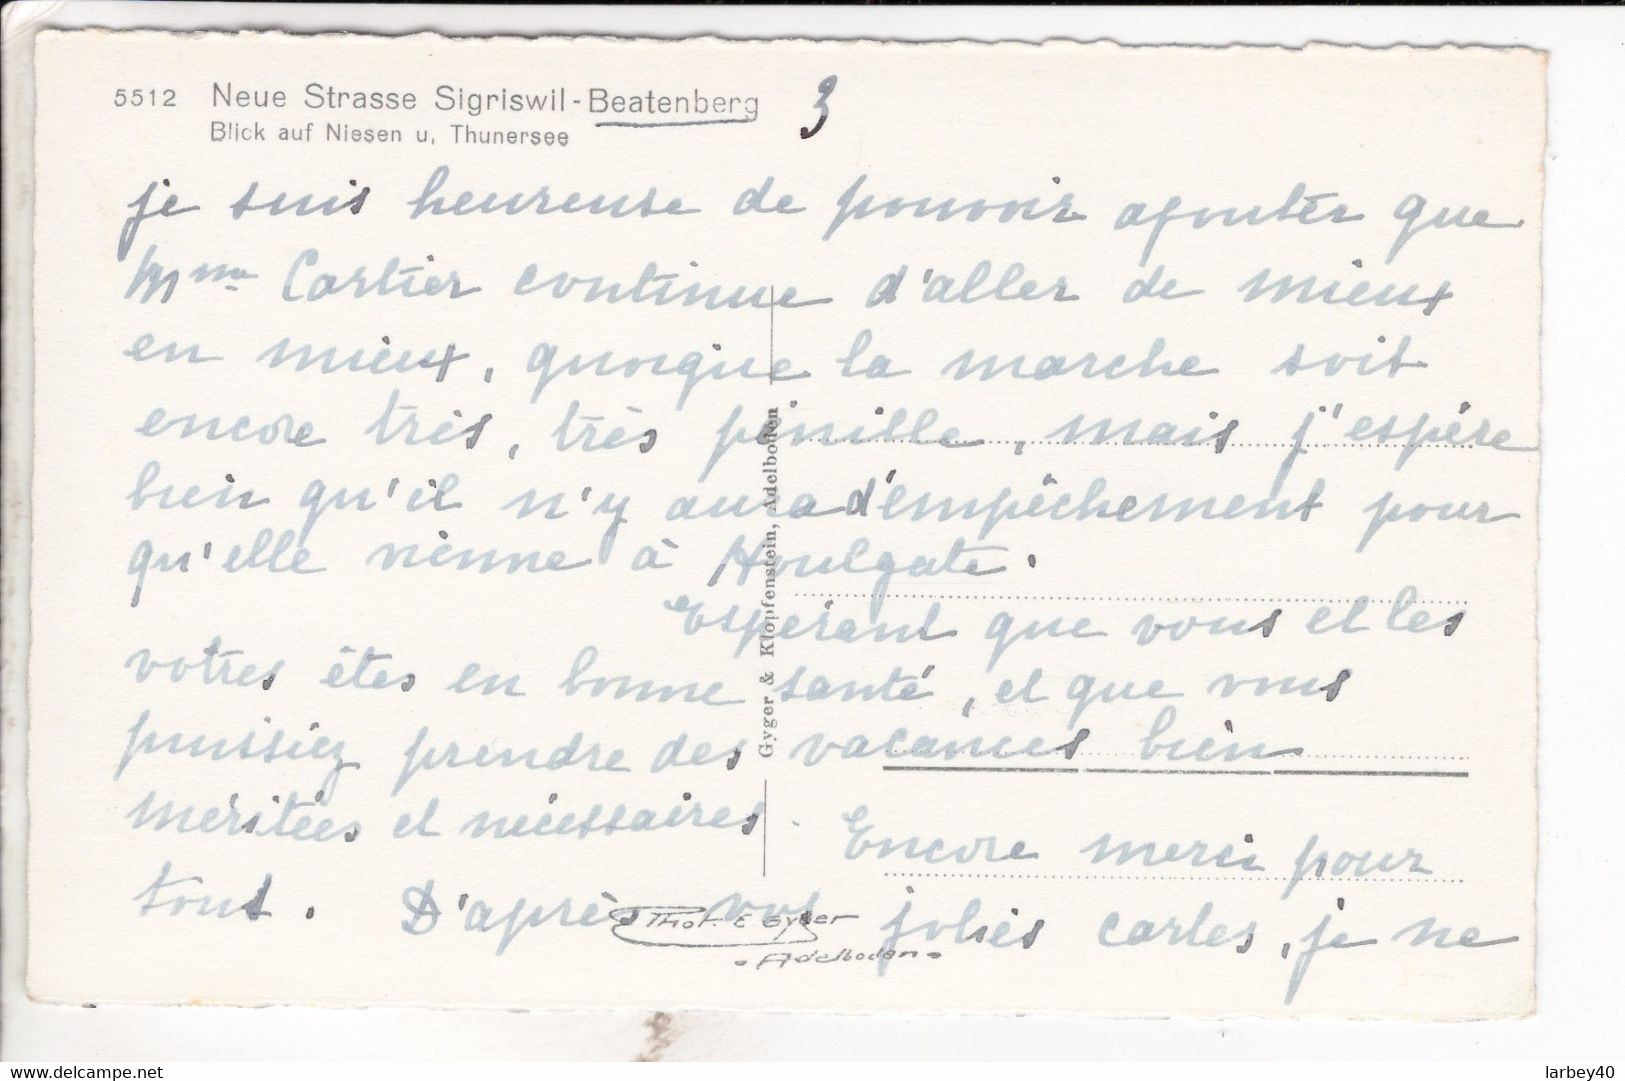 5512 Neue Strasse Sigriswil-Beatenberg 3
Blick auf Niesen u, Thunersee
je suis heureuse de pouvoir ajouter que
Mme Cartier continue d'aller de mieux
en mieux, quoique la marche soit
encore très, très pénible, mais j'espère
bien qu'il n'y aura d'empêchement pour
qu'elle vienne à Houlgate.
Espérant que vous et les
votres êtes en bonne santé, et que vous
puissiez prendre des vacances bien
méritées et nécessaires.
Encore merci pour
tout. D'après vos jolies cartes, je ne
Gyger & Klopfenstein, Adelboden
Phot. E Gyger
- Adelboden -
delcampe.net
larbey40